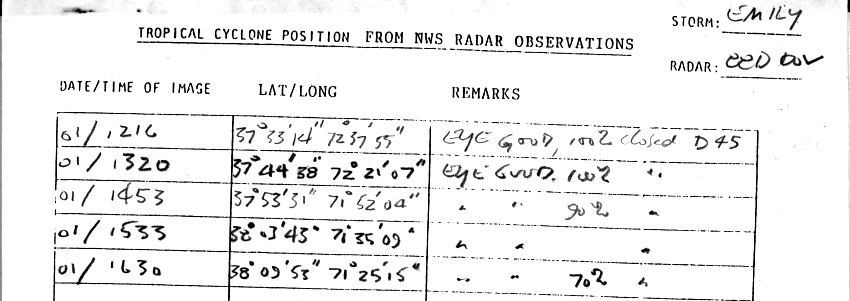 STORM: EMILY
TROPICAL CYCLONE POSITION FROM NWS RADAR OBSERVATIONS
RADAR: DOV
DATE/TIME OF IMAGE LAT/LONG REMARKS
01/1216 37°33'14" 72°37'55" EYE GOOD, 100% closed D45
01/1320 37°44'38" 72°21'07" EYE GOOD, 100% "
01/1453 37°53'31" 71°52'04" " " 90% "
01/1533 38°03'43" 71°35'09" " " "
01/1630 38°09'53" 71°25'15" " " 70% "